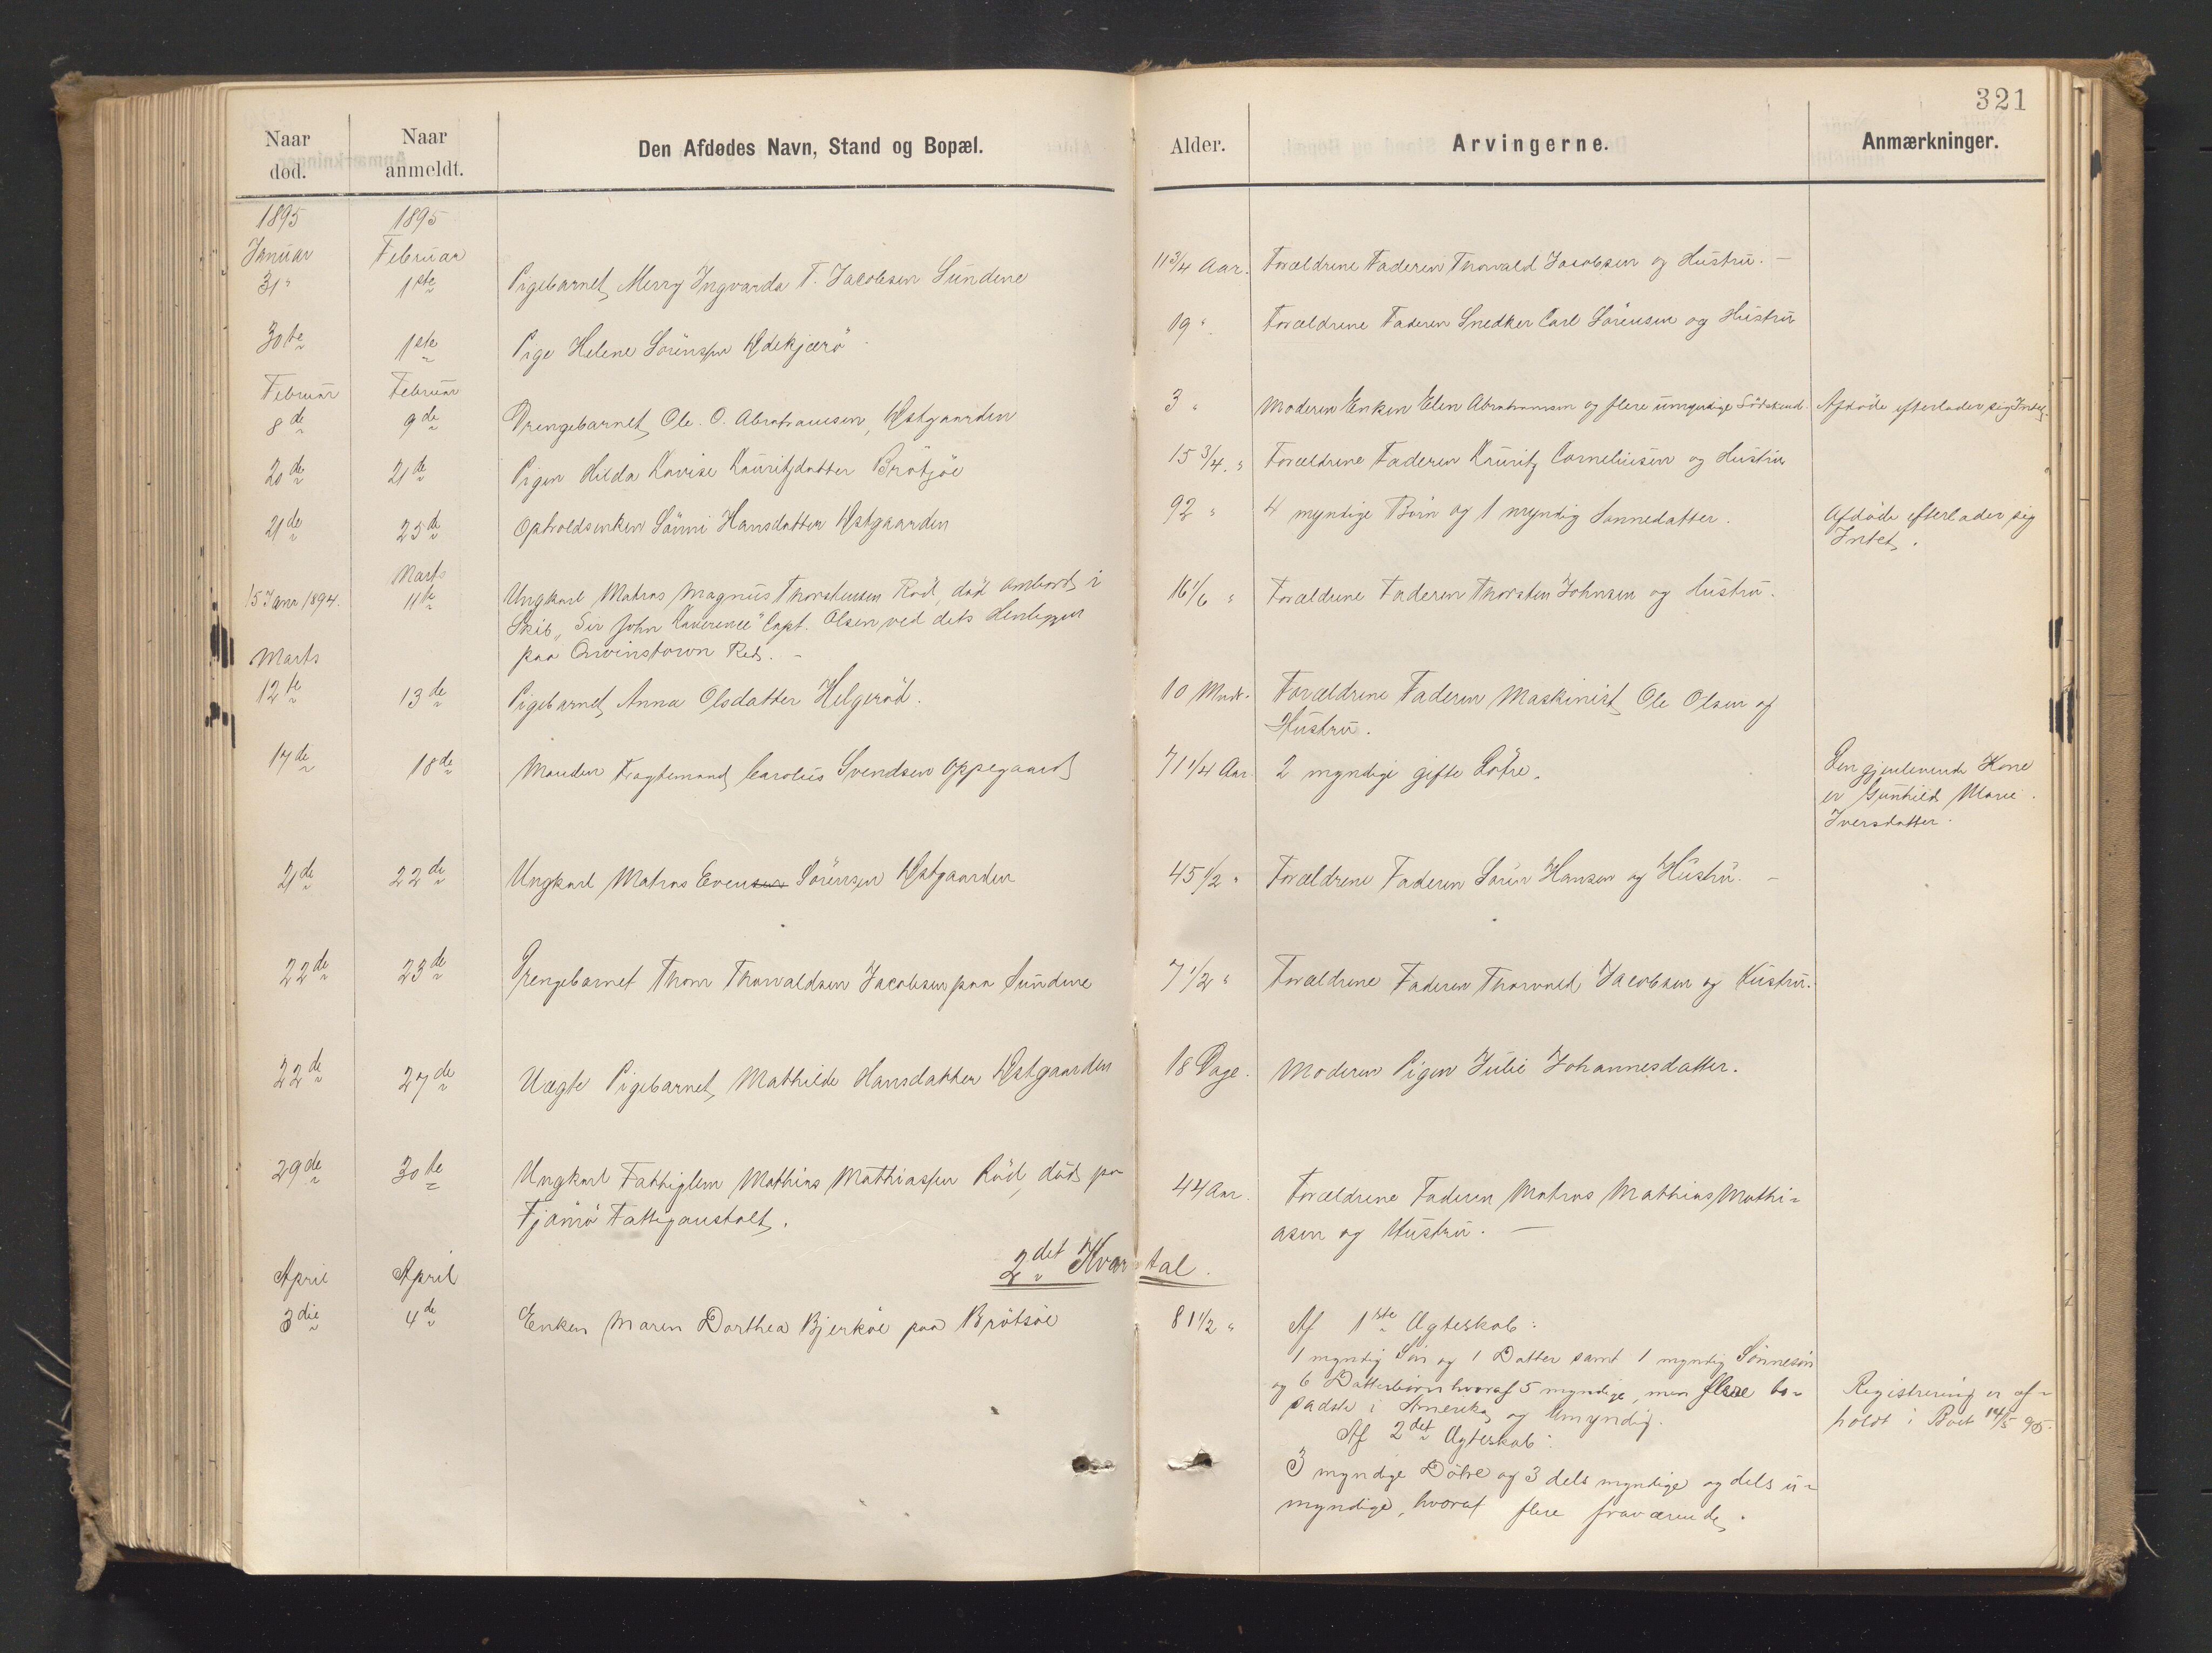 321
Naar død.
Naar anmeldt.
Den Afdødes Navn, Stand og Bopæl.
Alder.
Arvingerne.
Anmærkninger.
1895 1895
Januar Februar
31" 1ste Pigebarnet Merry Ingvarda T. Jacobsen Sundene 11 3/4 Aar. Forældrene Faderen Thorvald Jacobsen og Hustru. –
30te 1ste Pige Helene Sörensen Ødekjærö 19 " Forældrene Faderen Snedker Carl Sörensen og Hustru
Februar Februar
8de 9de Drengebarnet Ole. O. Abrahamsen, Østgaarden 3 " Moderen Enken Elen Abrahamsen og flere umyndige Södskend. Afdöde efterlader sig Intet.
20de 21de Pigen Hilda Lovise Lauritzdatter Brötjöe 15 3/4. " Forældrene Faderen Lauritz Corneliusen og Hustru
21de 25de Opholdsenken Sönni Hansdatter Østgaarden 92 " 4 myndige Börn og 1 myndig Sönnedatter. Afdöde efterlader sig
Intet.
Marts
15 Janr 1894. 11te Ungkarl Matros Magnus Thorstensen Röd, död ombord i 16 1/6 " Forældrene Faderen Thorsten Johnsen og Hustru.
Skib „Sir John Laurence" Capt. Olsen ved dets Henliggen
paa Qvinstown Red. –
Marts
12te 13de Pigebarnet Anna Olsdatter Helgeröd. 10 Mndr. Forældrene Faderen Maskinist Ole Olsen og
Hustru.
17de 18de Manden Fragtemand Carolus Svendsen Oppegaard 71 1/4 Aar 2 myndige gifte Dötre. Den gjenlevende Kone
er Gunhild Marie
Iversdatter.
21de 22de Ungkarl Matros Evensen Sörensen Østgaarden 45 1/2 " Forældrene Faderen Sören Hansen og Hustru. –
22de 23de Drengebarnet Thom Thorvaldsen Jacobsen paa Sundene 7 1/2 " Forældrene Faderen Thorvald Jacobsen og Hustru.
22de 27de Uægte Pigebarnet Mathilde Hansdatter Østgaarden 18 Dage. Moderen Pigen Julie Johannesdatter.
29de 30te Ungkarl Fattiglem Mathias Mathiassen Röd, död paa 44 Aar. Forældrene Faderen Matros Mathias Mathi-
Tjömö Fattiganstalt. asen og Hustru. –
2det Kvartal.
April April
3die 4de Enken Maren Dorthea Bjerköe paa Brötsöe 81 1/2 " Af 1ste Ægteskab:
1 myndig Sön og 1 Datter samt 1 myndig Sönnesön
og 6 Datterbörn hvoraf 5 myndige, men flere bo-
sadste i Amerika og Umyndig.
Af 2det Ægteskab:
3 myndige Dötre og 3 dels myndige og dels u-
myndige, hvoraf flere fraværende.
Registrering er af-
holdt i Boet 14/5 95.